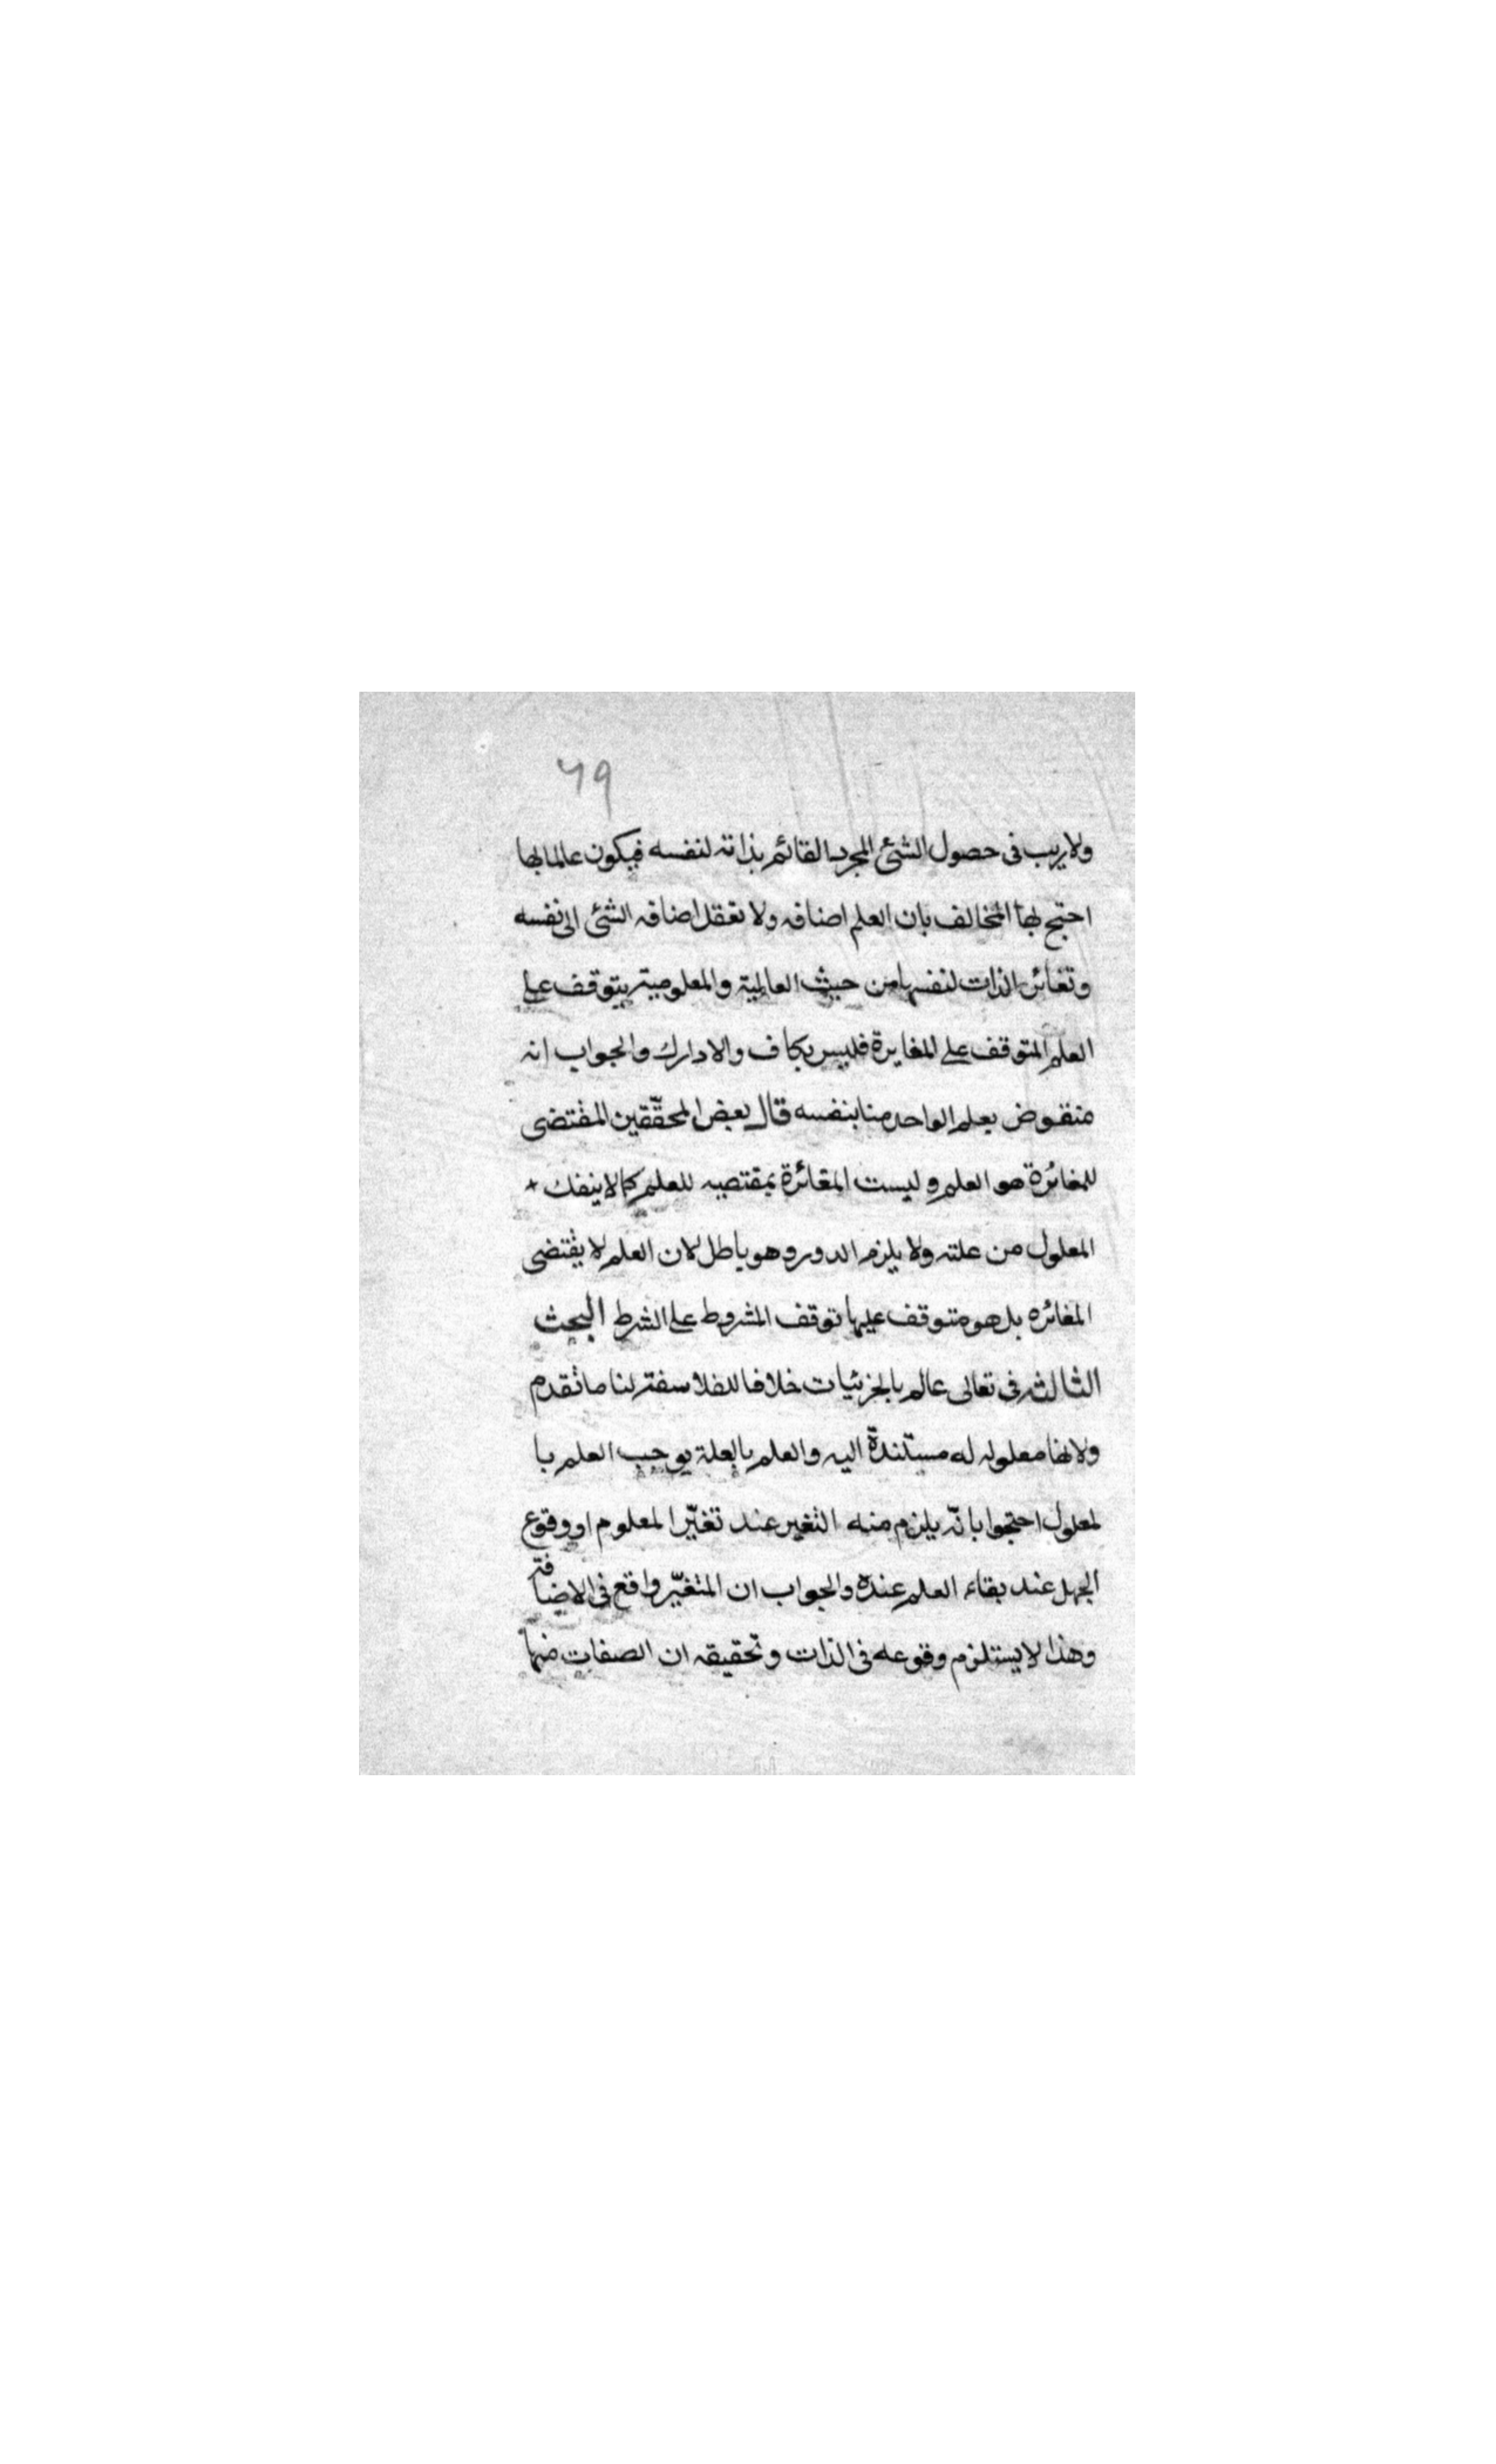 ٦٩
ولا ريب فى حصول الشئ المجرد القائم بذاته لنفسه فيكون عالما بها
احتج لها المخالف بان العلم اضافه ولا تعقل اضافه الشئ الى نفسه
وتغائر الذات لنفسها من حيث العالمية والمعلومية يتوقف على
العلم المتوقف على المغايرة فليس بكاف والادارك والجواب انه
منقوض بعلم الواحد منا بنفسه قال بعض المحقّقين المقتضى
للمغائرة هو العلم وليست المغائرة بمقتصيه للعلم كما لا ينفك
المعلول من علته ولا يلزم الدور وهو باطل لان العلم لا يقتضى
المغائره بل هو متوقف عليها توقف المشروط على الشرط البحث
الثالث فى تعالى عالم بالجزئيات خلافا للفلاسفة لنا ما تقدم
ولانها معلوله له مستندة اليه والعلم بالعلة يوجب العلم با
لمعلول احتجوا بانّه يلزم منه التغير عند تغيّر المعلوم او وقوع
الجهل عند بقاء العلم عنده والجواب ان المتغيّر واقع فى الاضافة
وهذا لا يستلزم وقوعه فى الذات وتحقيقه ان الصفات منها